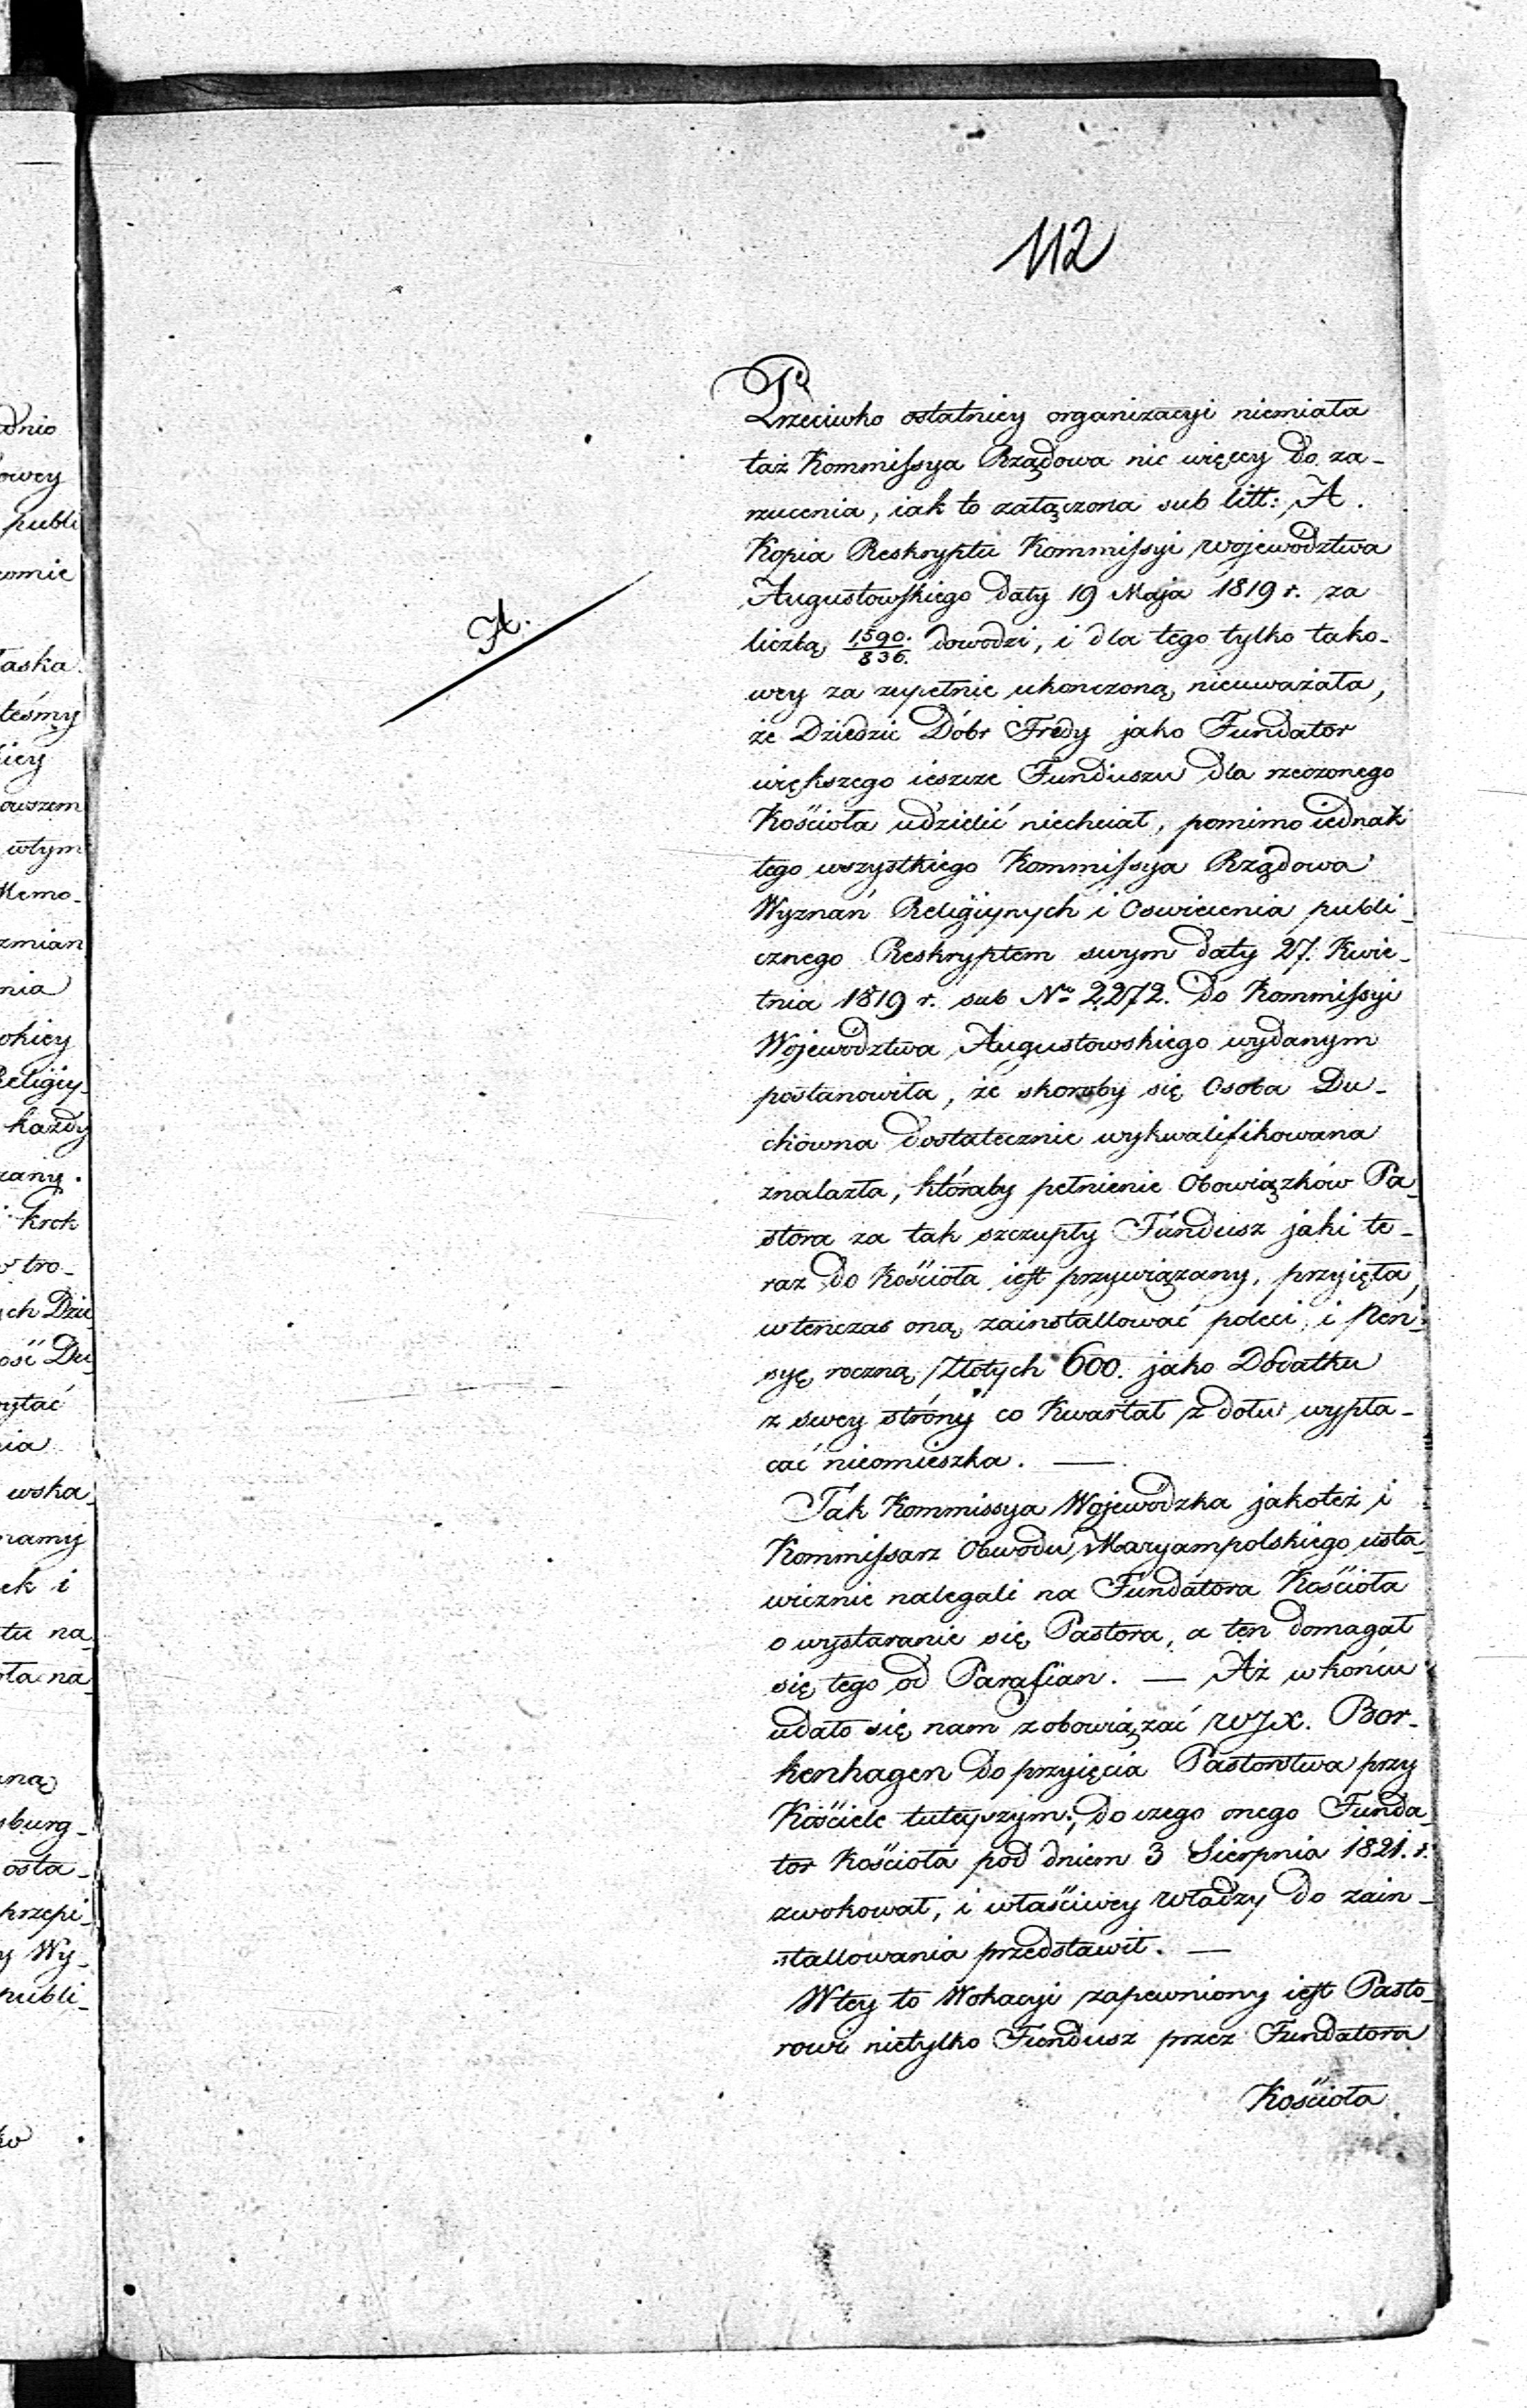 112
Przeciwko ostatniey organizacyi niemiała
taż Kommissya Rządowa nic więcey do za-
rzucenia, iak to załączona sub litt: A.
Kopia Reskryptu Kommissyi Województwa
Augustowskiego daty 19 Maja 1819 r. za
liczbą 1590./836. dowodzi, i dla tego tylko tako-
wey za zupełnie ukonczoną nieuważała,
że Dziedzic Dóbr Fredy jako Fundator
większego ieszcze Funduszu dla rzeczonego
Kościoła udzielić niechciał, pomimo iednak
tego wszystkiego Kommissya Rządowa
Wyznań Religiynych i Oswiecenia publi-
cznego Reskryptem swym daty 27. Kwie-
tnia 1819 r. sub No 2,272. do Kommissyi
Województwa Augustowskiego wydanym
postanowiła, że skoroby się Osoba Du-
chowna dostatecznie wykwalifikowana
znalazła, któraby pełnienie Obowiązków Pa-
stora za tak szczupły Fundusz jaki te-
raz do Kościoła iest przywiązany, przyięła,
wtenczas oną zainstallować poleci, i Pen-
syę roczną Złotych 600. jako Dodatku
z swey stróny co Kwartał z dołu wypła-
cać nieomieszka. —
Tak Kommissya Wojewódzka jakoteż i
Kommissarz Obwodu Maryampolskiego usta-
wicznie nalegali na Fundatora Kościoła
o wystaranie się Pastora, a ten domagał
się tego od Parafian. — Aż w końcu
udało się nam zobowiązać WJX. Bor-
kenhagen do przyięcia Pastorstwa przy
Kościele tuteyszym; do czego onego Funda-
tor Kościoła pod dniem 3 Sierpnia 1821. r.
zwokował, i właściwey Władzy do zain-
stallowania przedstawił. —
W tey to Wokacyi zapewniony iest Pasto-
rowi nietylko Fundusz przez Fundatora
Kościoła
A.